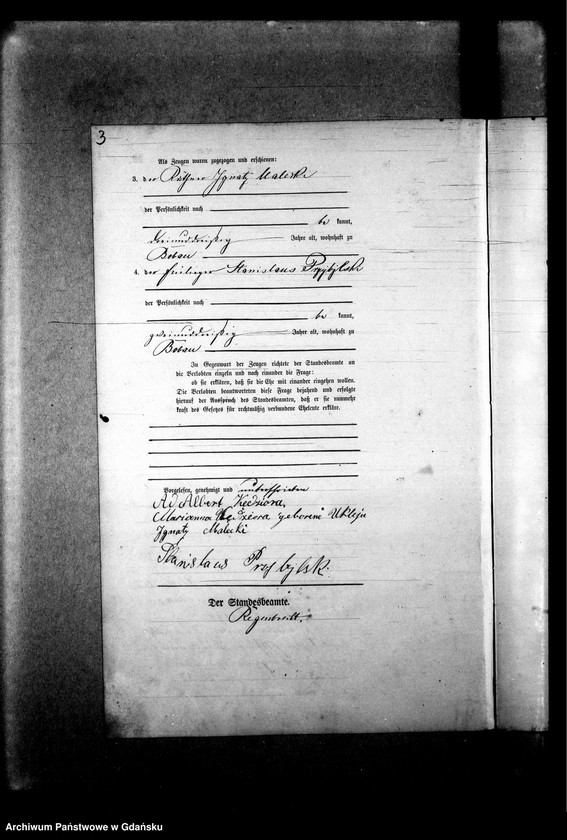 3
Als Zeugen waren zugezogen und erschienen:
3. der Ignatz Maleske
der Persönlichkeit nach
be kannt,
dreiunddreißig Jahre alt, wohnhaft zu
Bobau
4. der Stanislaus Przybylski
der Persönlichkeit nach
be kannt,
zweiunddreißig Jahre alt, wohnhaft zu
Bobau
In Gegenwart der Zeugen richtete der Standesbeamte an
die Verlobten einzeln und nach einander die Frage:
ob sie erklären, daß sie die Ehe mit einander eingehen wollen.
Die Verlobten beantworteten diese Frage bejahend und erfolgte
hierauf der Ausspruch des Standesbeamten, daß er sie nunmehr
kraft des Gesetzes für rechtmäßig verbundene Eheleute erkläre.
Vorgelesen, genehmigt und unterschrieben
Albert Kędziora,
Marianna Kędziora geborene Ukleja
Ignatz Malecki
Stanislaus
Der Standesbeamte.
Archiwum Państwowe w Gdańsku